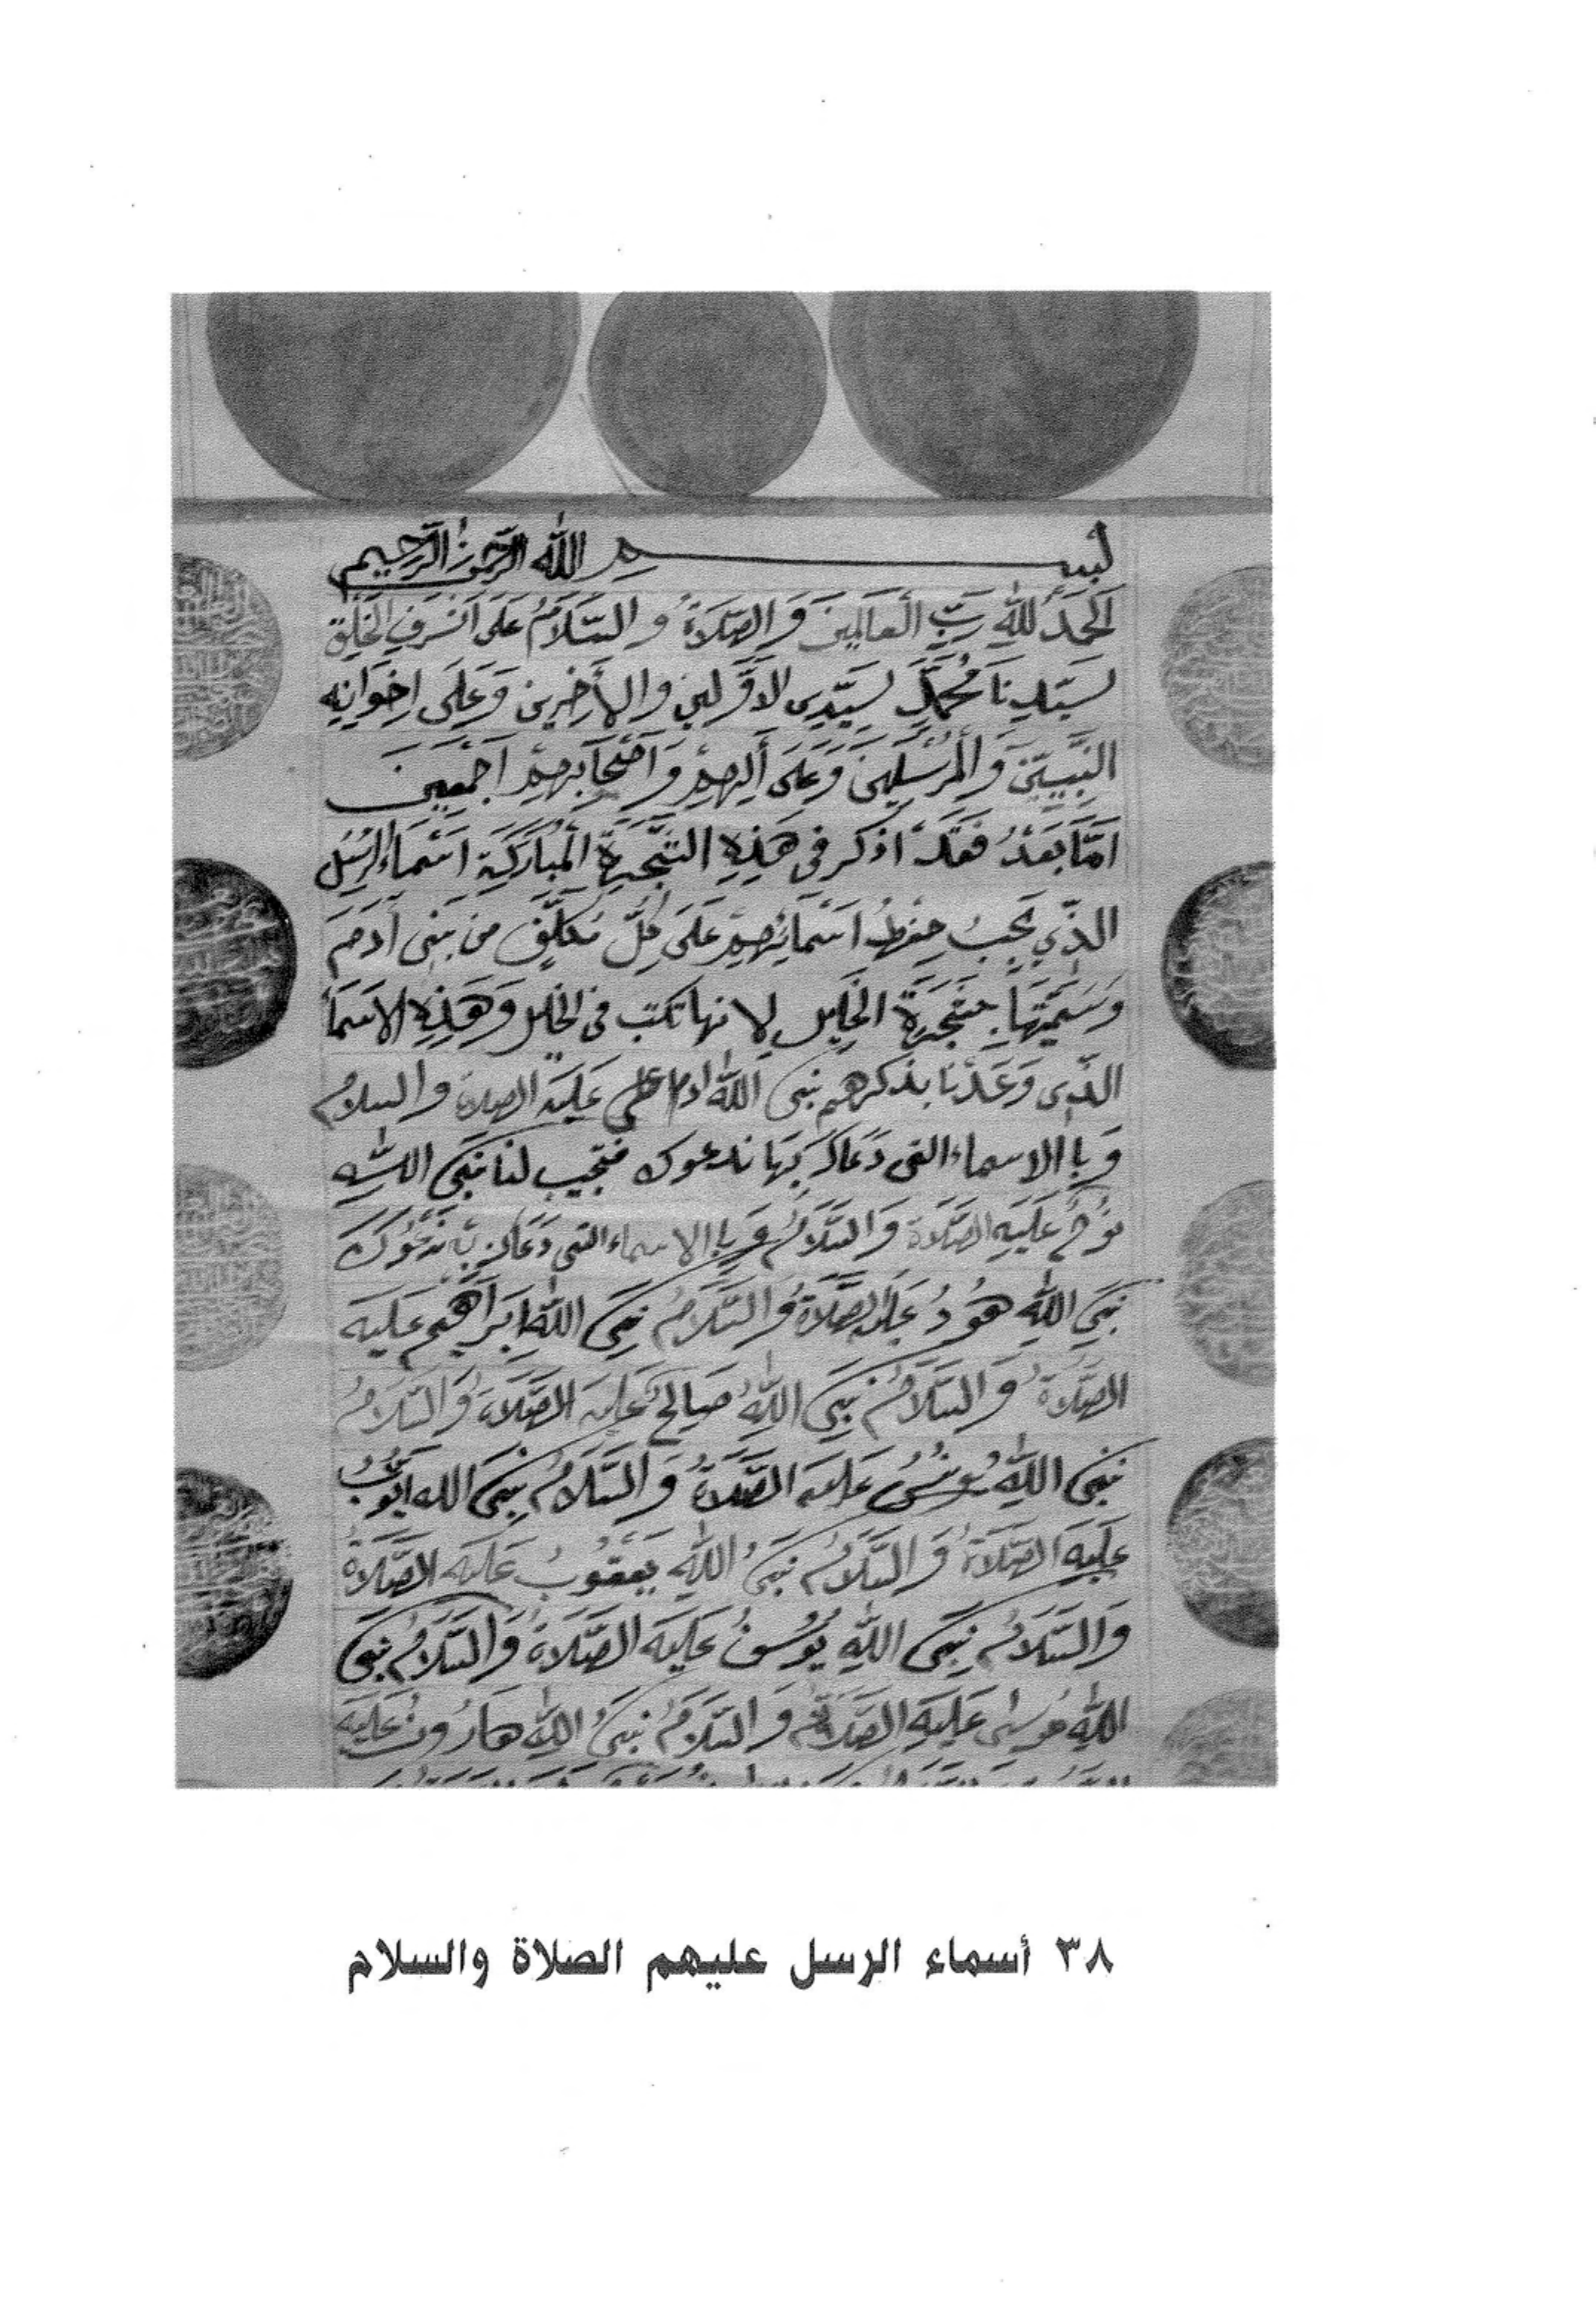 بسم الله الرحمن الرحيم
اَلحَمدُ للهِ رَبِّ اَلعَالمِينَ وَ الصَّلاَةُ وَ السَّلاَمُ عَلىَ اَشرَفِ الخَلقِ
سَيّدِنَا مُحَمَّدٍ سَيّدِى الاَوَّلِين والأخِرين وَعَلَى اِخوَانِهِ
النَّبِيينَ وَ اَلمُرسَلِينَ وَعَلىَ أَلِهِم وَ اَصحَابِهِم اَجمعِينَ
اَمَّا بَعَدُ فَقَد اذكر فى هَذِهِ الشَّجَرَةِ اَلمُبَارَكَةِ اَسمَاءُ الرُسُلِ
الذّي يَجِبُ حِفظُ اَسمَائِهِم عَلىَ كُلِّ مُكَلَّفٍ من بَنِى أَدَمَ
وَسَمَيتهَا بِشَجَرَةِ الخَلِيل لانها تكتب فى الخليل وَهَذِهِ الاَسمَأ
الذّى وَعَدنَا بذكرهم نبى الله ادم عَلَيَه الصلاة والسلامُ
وَ باالاسماء التى دَعَاكَ بَهَا ندعوك فتجيب لنا نَبىَ اللهِ
نُوحُ عَلَيَهِ الصَّلاَة وَالسَّلاَمُ وَ باالاسماء التى دَعَاكَ بهَا نَدعُوكَ
نَبىِ اللهِ هُودُ عَلَيه الصَّلاَةُ وَالسَّلاَمُ نَبىَ اللهِ اِبَرَاهِيم عَليَه
الصَّلاَةُ وَ السَّلاَمُ نَبىَ اللهِ صَالِحُ عَليَه الصَّلاَةُ وَالسَّلاَمُ
نَبىَ اللهِ يُونسُ عَليَه الصَّلاَةُ وَ السَّلاَمُ نبىَ الله ايّوُبُ
عَليَهِ الصَّلاَةُ وَ السَّلاَمُ نَبىَُ اللهِ يَعقوُبُ عَليَه الصَّلاَةُ
وَالسَّلاَمُ نَبىَ اللهِ يُوسُفُ عَليَه الصَّلاَةُ وَالسَّلاَمُ نَبىَ
اللهِ موُسىَ عَليَهِ الصَّلاَةُ وَ السَّلاَمُ نَبىَُ اللهِ هَارُونُ عَليَه
٣٨ أسماء الرسل عليهم الصلاة والسلام